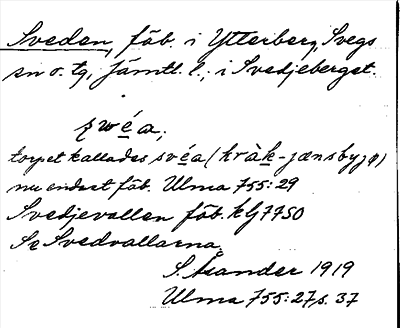 Sveden, fäb. i Ytterberg, Svegs
sn o. tg, Jämtl. l., i Svedjeberget.
swéa,
torpet kallades svéa (kràk-jænsbyjø)
nu endast fäb. Ulma 755:29
Svedjevallen fäb. kG7750
Se Svedvallarna.
S. 1919
Ulma 755:27 s. 37